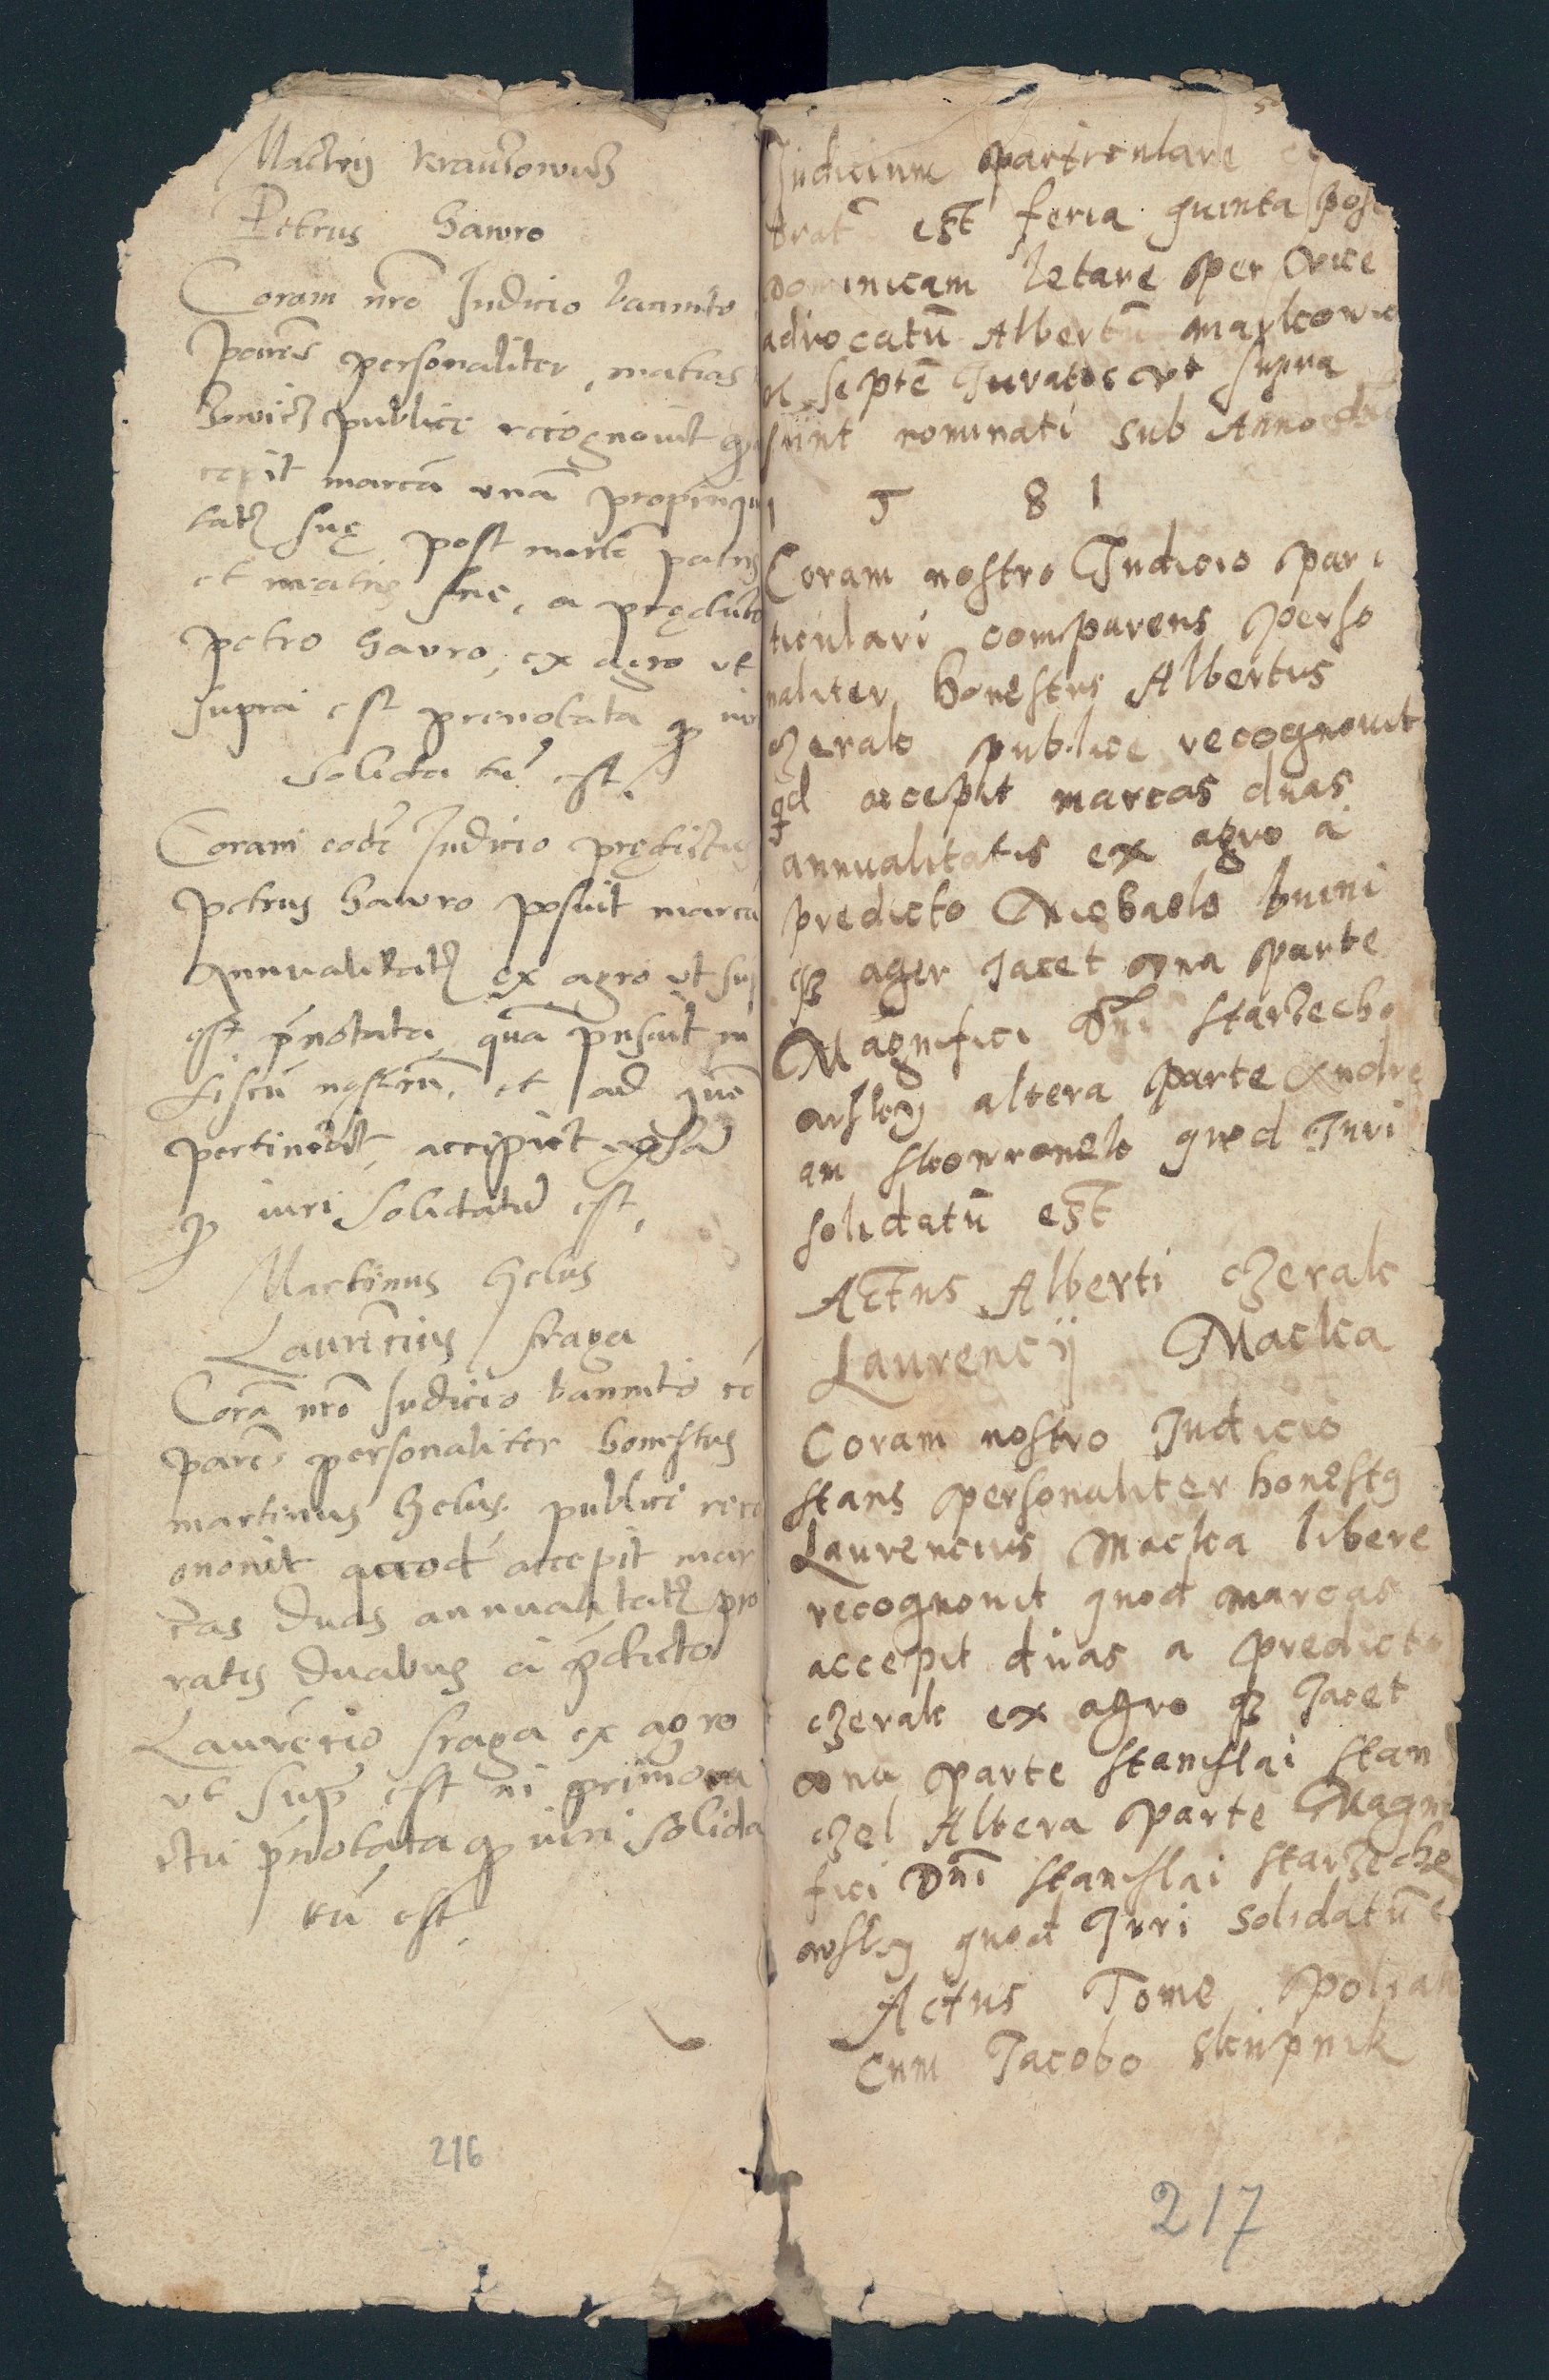 Petrus Hawro
Coram nro Judicio bannito
personaliter, matias
publice recognovit
cepit marcā vnā propinqui
tatis suę post mortē patris
et matris sue, a prędicto
petro havro, ex agro ut
supra est prenotata iuri
solidatū est.
Coram eodē Judicio prędictus
petrus hawro posuit marcā
Annualitatis ex agro ut sup
est p̄notata quā posuit in
fiscū nostrū, et ad quē
pertinebit, accipiet
iuri solidatū est,
Martinus Helus
Laurētius fraga
Corā nrō Judicio bannito cō
parēs personaliter honestus
martinus Helus publice reco
gnovit quod accepit mar
cas duas annualitatis pro
ratis duabus a p̄dicto
Laurētio fraga ex agro
ut sup est in primo a
ctu p̄notata iuri solida
tū est
216
Judicium particulare ce
brat est feria quinta post
Dominicam letare per vice
advocatū Albertū
et septē Juratos ut supra
sunt nominati sub Anno dni
1 5 8 1
Coram nostro Judicio par
ticulari comparens perso
naliter honestus Albertus
czerak publice recognouit
qd accepit marcas duas
annualitatis ex agro a
predicto Michaele
ager Jacet vna parte
Magnifici Dni starzecho
wsky altera parte Andre
am skowronek qued Juri
solidatū est
Actus Alberti czerak
Laurencij Macka
Coram nostro Judicio
stans personaliter honestq
Laurencius Macka libere
recognouit quod marcas
accepit duas a predicto
czerak ex agro q Jacet
vna parte stanislai stan
czel Altera parte Magni
fici Dni stanislai starzecho
wsky quod Juri solidatū e
Actus Tome
Cum Jacobo slupnik
217